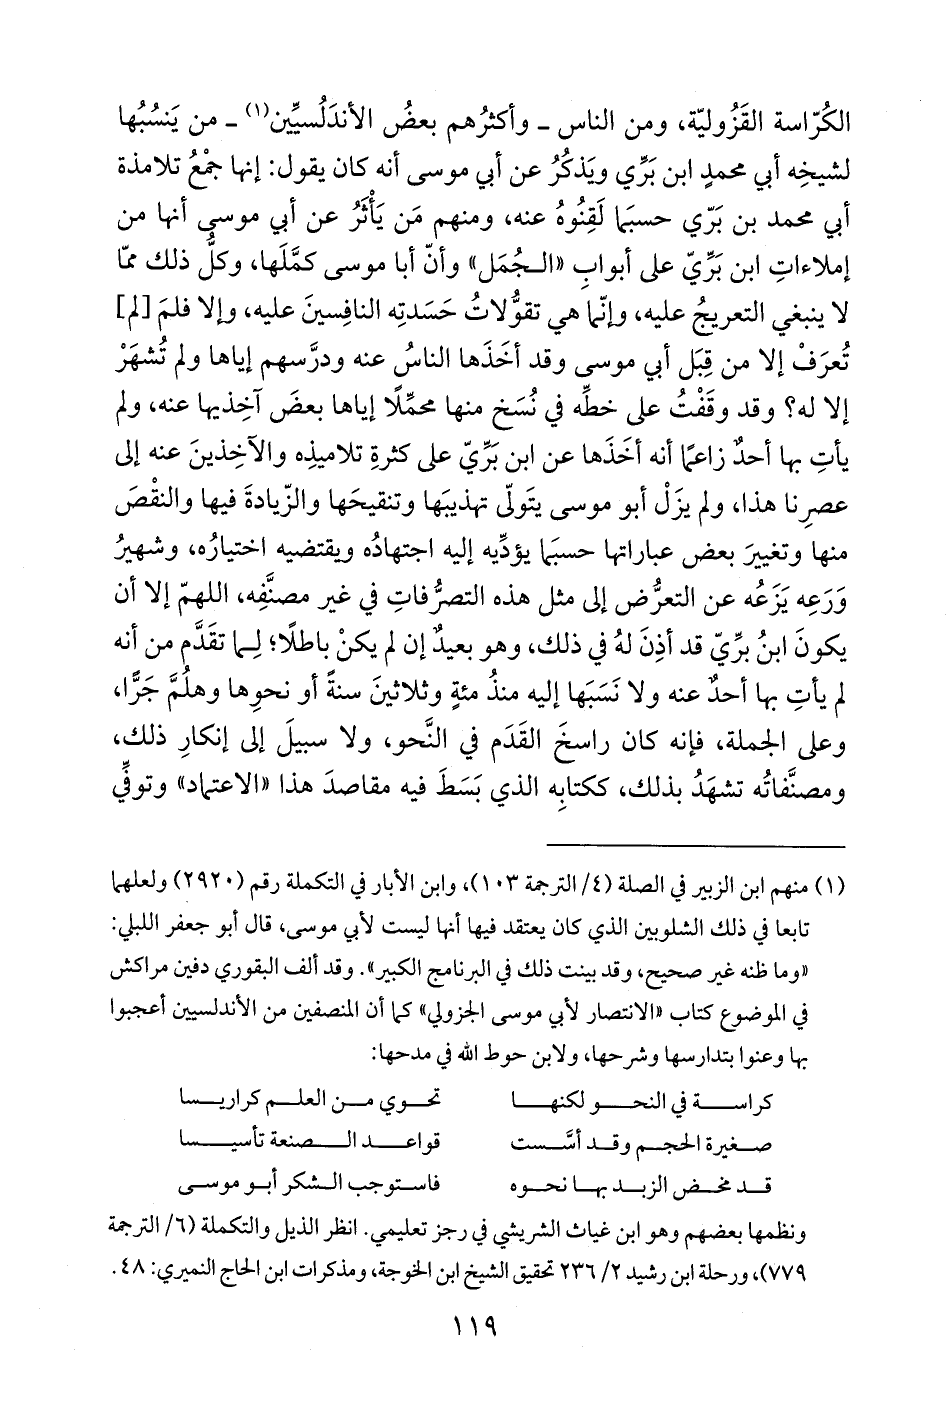 الكُرّاسة القَزُوليّة، ومن الناس - وأكثرُهم بعضُ الأندَلُسيِّين(١) - من يَنسُبُها
لشيخِه أبي محمدٍ ابن بَرِّي ويَذكُرُ عن أبي موسى أنه كان يقول: إنها جَمْعُ تلامذة
أبي محمد بن بَرّي حسبَما لَقِنُوهُ عنه، ومنهم مَن يَأْثُرُ عن أبي موسى أنها من
إملاءاتِ ابن بَرِّيّ على أبوابِ «الجُمَل» وأنّ أبا موسى كمَّلَها، وكلُّ ذلك ممّا
لا ينبغي التعريجُ عليه، وإنّما هي تقوُّلاتُ حَسَدتِه النافِسينَ عليه، وإلا فلمَ [لم]
تُعرَفْ إلا من قِبَل أبي موسى وقد أخَذَها الناسُ عنه ودرَّسهم إياها ولم تُشهَرْ
إلا له؟ وقد وقَفْتُ على خطِّه في نُسَخ منها محمِّلًا إياها بعضَ آخذِيها عنه، ولم
يأتِ بها أحدٌ زاعمًا أنه أخَذَها عن ابن بَرِّيّ على كثرةِ تلاميذِه والآخِذينَ عنه إلى
عصرِنا هذا، ولم يزَلْ أبو موسى يتَولّى تهذيبَها وتنقيحَها والزّيادةَ فيها والنقْصَ
منها وتغييرَ بعض عباراتها حسبَما يؤدِّيه إليه اجتهادُه ويقتضيه اختيارُه، وشهيرُ
وَرَعِه يَزَعُه عن التعرُّض إلى مثل هذه التصرُّفاتِ في غير مصنَّفِه، اللهمّ إلا أن
يكونَ ابنُ بَرِّيّ قد أذِنَ لهُ في ذلك، وهو بعيدٌ إن لم يكنْ باطلًا؛ لِما تقَدَّم من أنه
لم يأتِ بها أحدٌ عنه ولا نَسَبَها إليه منذُ مئةٍ وثلاثينَ سنةً أو نحوِها وهلُمَّ جَرًّا،
وعلى الجملة، فإنه كان راسخَ القَدَم في النَّحو، ولا سبيلَ إلى إنكارِ ذلك،
ومصنَّفاتُه تشهَدُ بذلك، ككتابِه الذي بَسَطَ فيه مقاصدَ هذا «الاعتماد» وتوفِّي
(١) منهم ابن الزبير في الصلة (٤/ الترجمة ١٠٣)، وابن الأبار في التكملة رقم (٢٩٢٠) ولعلهما
تابعا في ذلك الشلوبين الذي كان يعتقد فيها أنها ليست لأبي موسى، قال أبو جعفر اللبلي:
«وما ظنه غير صحيح، وقد بينت ذلك في البرنامج الكبير». وقد ألف البقوري دفين مراكش
في الموضوع كتاب «الانتصار لأبي موسى الجزولي» كما أن المنصفين من الأندلسيين أعجبوا
بها وعنوا بتدارسها وشرحها، ولابن حوط الله في مدحها:
كراسة في النحو لكنها تحوي من العلم كراريسا
صغيرة الحجم وقد أسَّست قواعد الصنعة تأسيسا
قد مخض الزبد بها نحوه فاستوجب الشكر أبو موسى
ونظمها بعضهم وهو ابن غياث الشريشي في رجز تعليمي. انظر الذيل والتكملة (٦/ الترجمة
٧٧٩)، ورحلة ابن رشيد ٢/ ٢٣٦ تحقيق الشيخ ابن الخوجة، ومذكرات ابن الحاج النميري: ٤٨.
١١٩